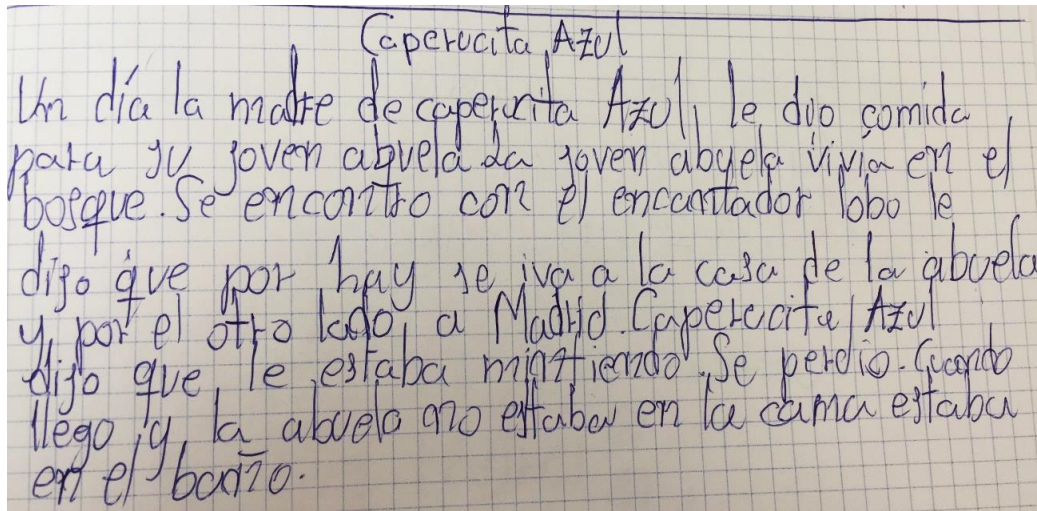 Caperucita Azul
Un día la madre de caperucita Azul, le dio comida
para su joven abuela La joven abuela vivia en el
bosque. Se encontro con el encantador lobo le
dijo que por hay se iva a la casa de la abuela
y por el otro lado, a Madrid. Caperucita Azul
dijo que le estaba mintiendo. Se perdio. Cuando
llego y la abuela no estaba en la cama estaba
en el baño.